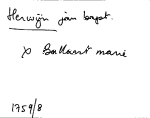 Herwijn jan bapt.
x Ballant marie
1759/8